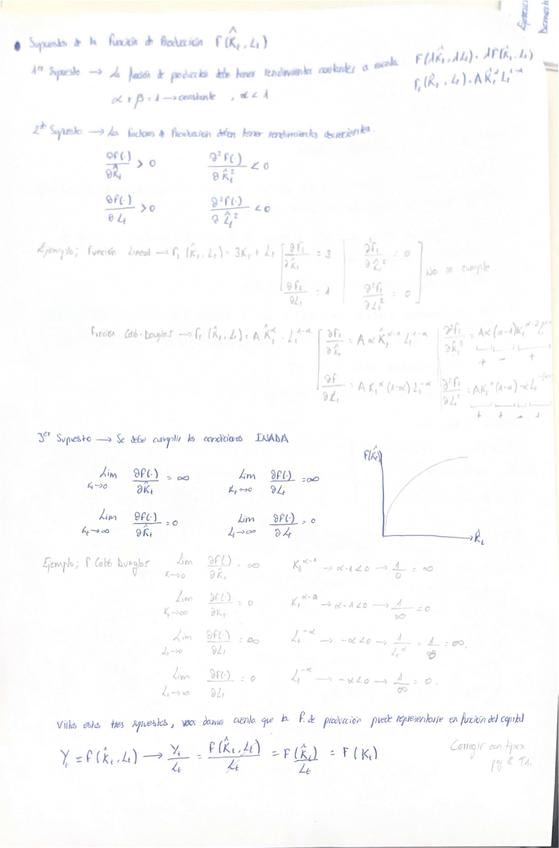 Supuestos de la Función de Producción F(K̂t, Lt)
1er Supuesto → La función de producción debe tener rendimientos constantes a escala F(λK̂t, λLt) = λF(K̂t, Lt)
α + β = 1 → constante, α < 1 Ft(K̂t, Lt) = A K̂t^α Lt^1-α
2do Supuesto → Los Factores de Producción deben tener rendimientos decrecientes.
∂F(·)/∂K̂t > 0 ∂²F(·)/∂K̂t² < 0
∂F(·)/∂Lt > 0 ∂²F(·)/∂Lt² < 0
Ejemplo; Función Lineal → Ft(K̂t, Lt) = 3Kt + Lt [ ∂Ft/∂K̂t = 3 | ∂²Ft/∂K̂t² = 0
∂Ft/∂Lt = 1 | ∂²Ft/∂Lt² = 0 ] No se cumple
Función Cobb-Douglas → Ft(K̂t, Lt) = A K̂t^α · Lt^1-α [ ∂Ft/∂K̂t = Aα K̂t^α-1 Lt^1-α | ∂²Ft/∂K̂t² = Aα(α-1)Kt^α-2
+ - +
∂F/∂Lt = A Kt^α (1-α) Lt^-α | ∂²Ft/∂Lt² = AKt^α(1-α)·-α
+ +
3er Supuesto → Se debe cumplir las condiciones INADA
Lim Kt→0 ∂F(·)/∂K̂t = ∞ Lim ∂F(·)/∂Lt = ∞
Lim Kt→∞ ∂F(·)/∂K̂t = 0 Lim Lt→∞ ∂F(·)/∂Lt = 0
F(K̂t)
K̂t
Ejemplo; F Cobb Douglas Lim Kt→0 ∂F(·)/∂K̂t = ∞ Kt^α-1 → α-1<0 → 1/0 = ∞
Lim Kt→∞ ∂F(·)/∂Kt = 0 Kt^α-1 → α-1<0 → 1/∞ = 0
Lim ∂F(·)/∂Lt = ∞ Lt^-α → -α<0 → = ∞.
Lim Lt→∞ ∂F(·)/∂Lt = 0 Lt^-α → -α<0 → 1/∞ = 0.
Vistos estos tres supuestos, nos damos cuenta que la F. de producción puede representarse en función del capital
Yt = F(K̂t, Lt) → Yt/Lt = F(K̂t, Lt)/Lt = F(K̂t)/Lt = F(Kt)
Corregir con tipex